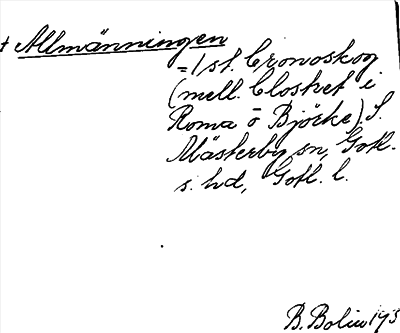 + Allmänningen
= 1 st. Cronoskog
(mell. Closket i
Roma ō Björke). S.
Mästerby sn, Gotl.
s. hd, Gotl. l.
B. Bolin 193